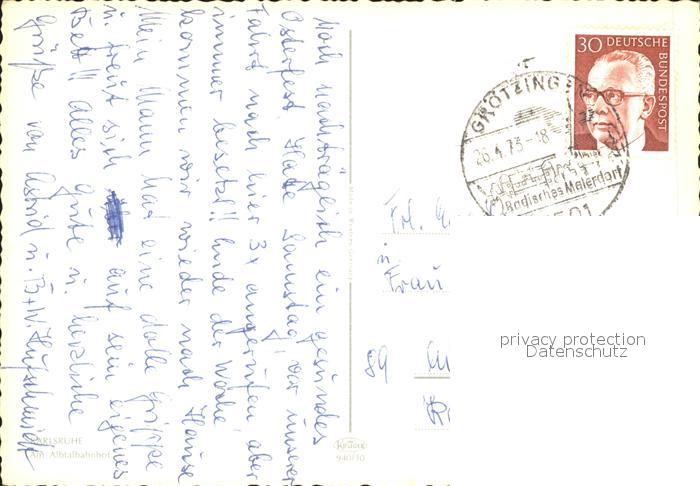 Noch nachträglich ein gesundes
Osterfest. Hatte Samstag, vor unserer
Fahrt nach hier 3x angerufen, aber
immer besetzt!! Ende der Woche
kommen wir wieder nach Hause
Mein Mann hat eine dolle Grippe
u. freut sich auf sein eigenes
Bett!! Alles Gute u. herzliche
Grüße von Astrid u.
KARLSRUHE
Am Albtalbahnhof
Krüger
940/10
30 DEUTSCHE BUNDESPOST
GRÖTZINGEN
26.4.73-18
Badisches Malerdorf
Frl.
u.
Frau
89
privacy protection
Datenschutz